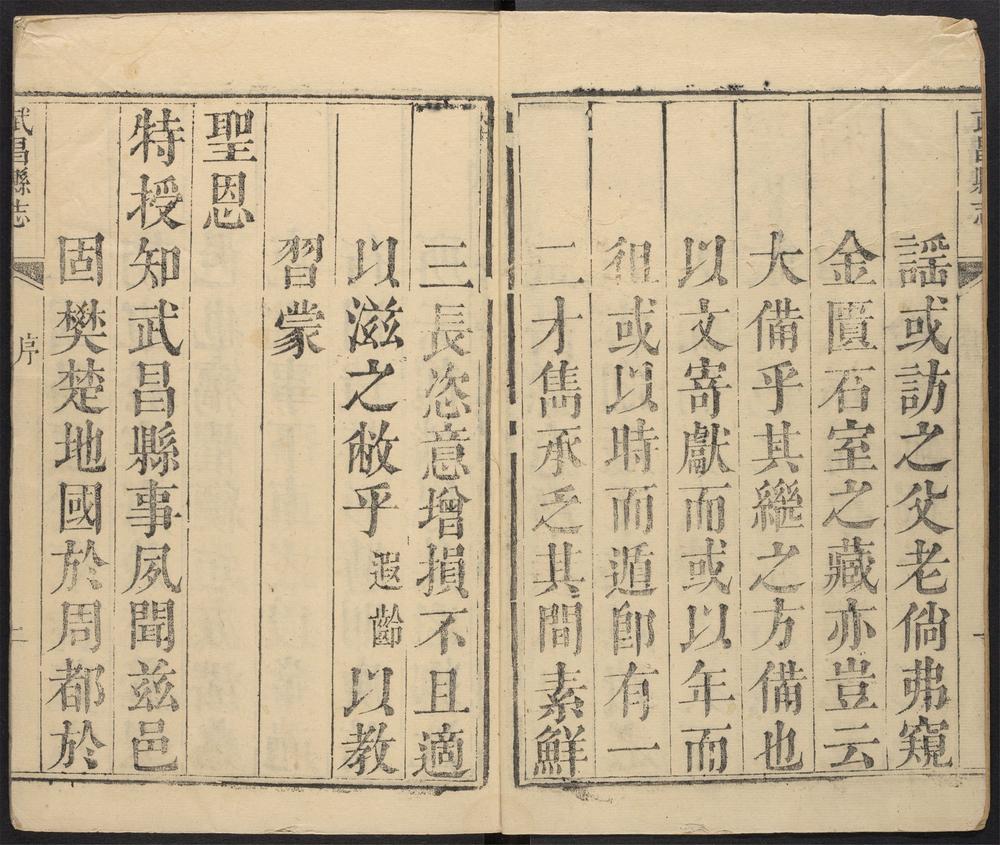 謡或訪之父老倘弗窺
金匱石室之藏亦豈云
大備乎其繼之方備也
以文寄獻而或以年而
徂或以時而遁卽有一
二才雋承乏其間素鮮
三長恣意增損不且適
以滋之敝乎遐齡以教
習蒙
聖恩
特授知武昌縣事夙聞兹邑
固樊楚地國於周都於
武昌縣志
序